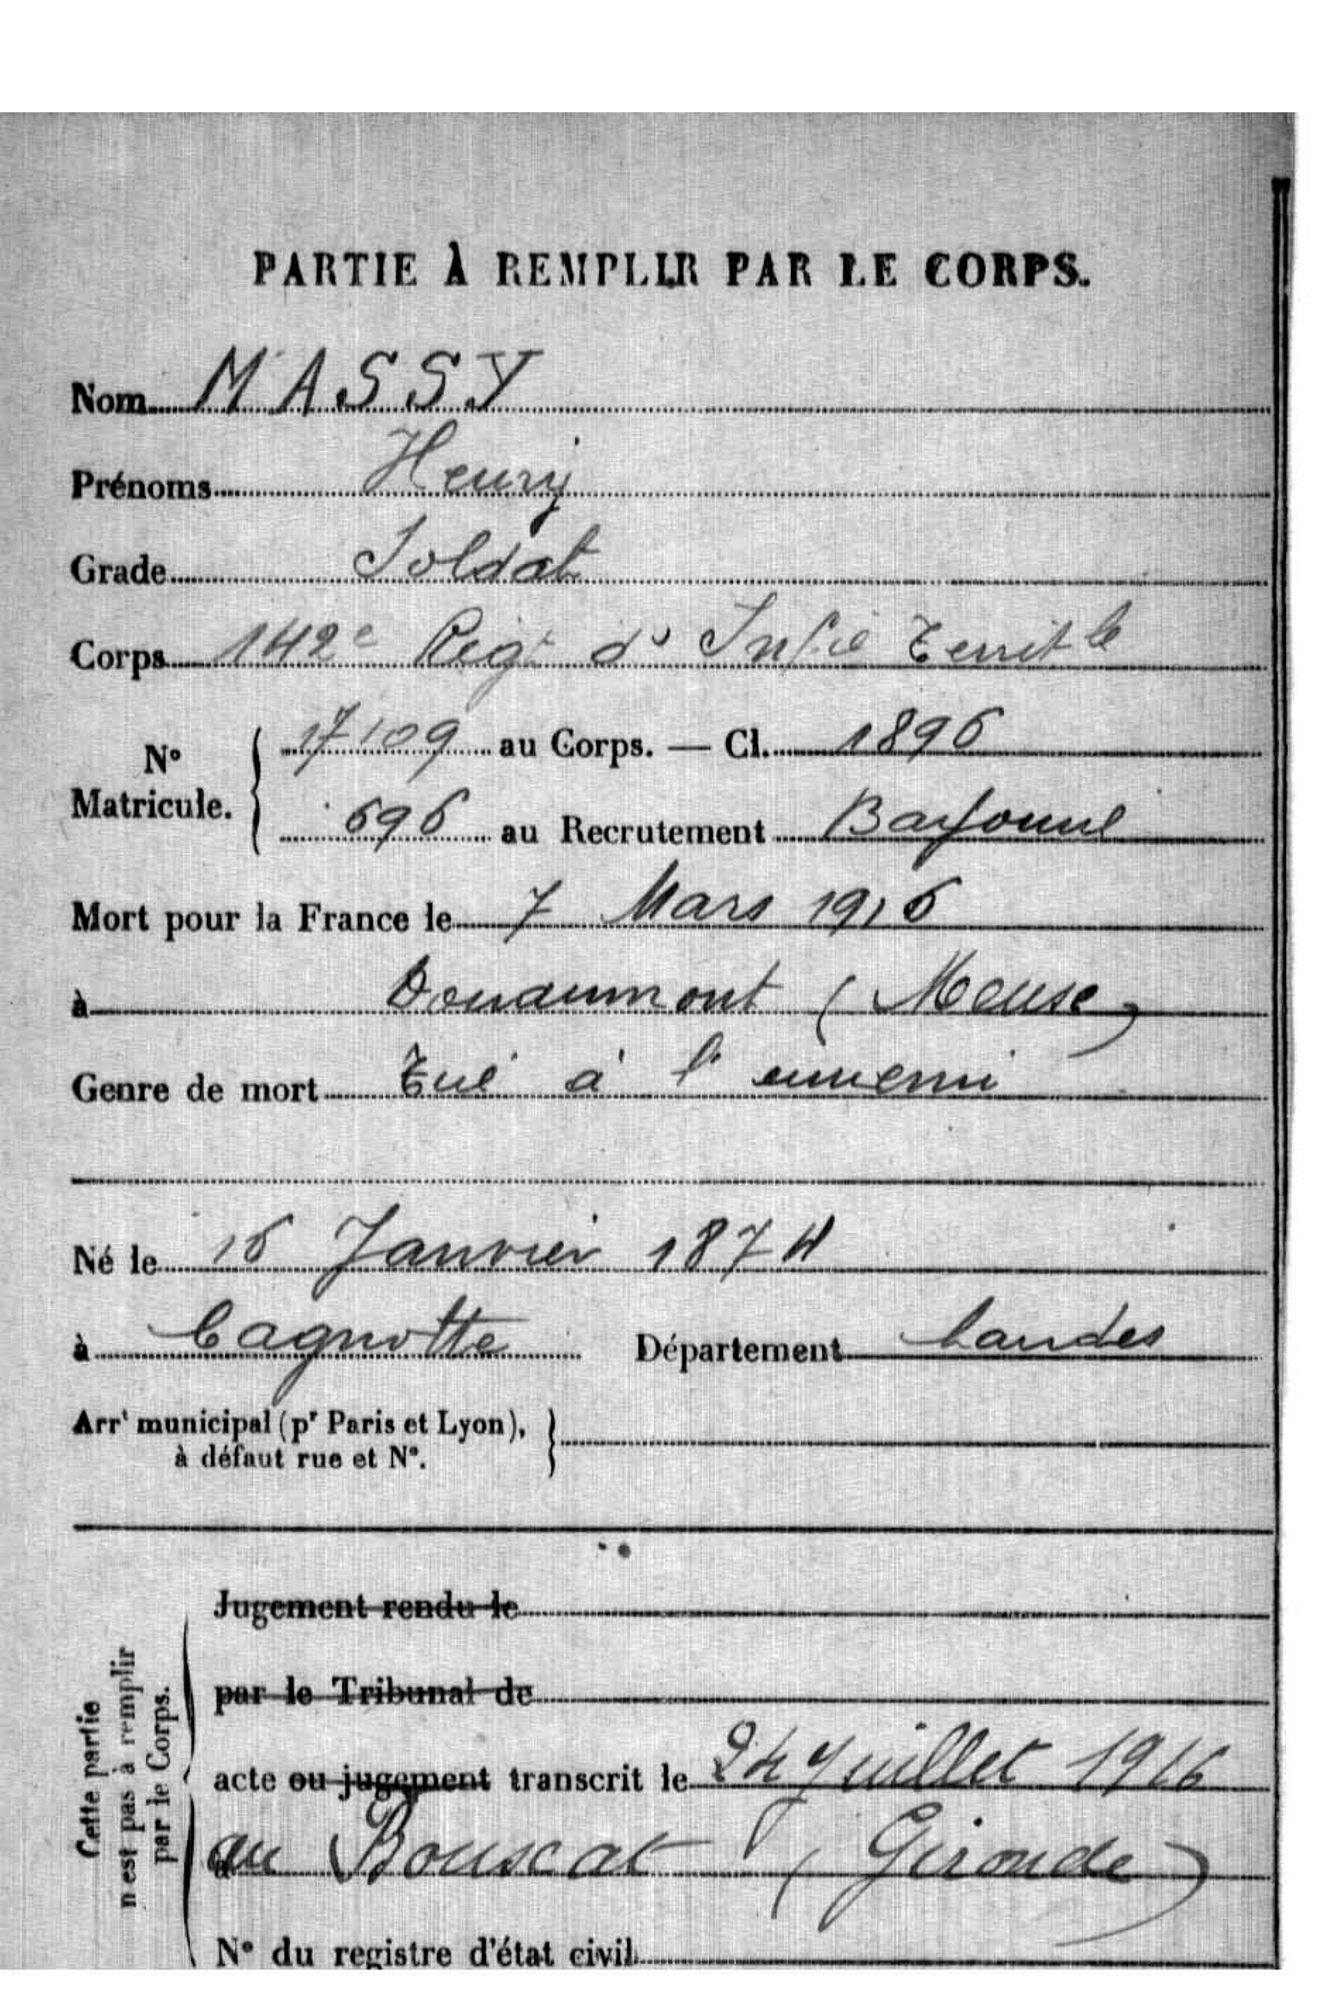 PARTIE À REMPLIR PAR LE CORPS.
Nom MASSY
Prénoms Henry
Grade Soldat
Corps 142e Régt d' Infie Territle
N° Matricule. 17109 au Corps. — Cl. 1896
696 au Recrutement Bayonne
Mort pour la France le 7 Mars 1916
à Douaumont (Meuse)
Genre de mort Tué à l'ennemi
Né le 16 Janvier 1874
à Cagnotte Département Landes
Arrt municipal (pr Paris et Lyon),
à défaut rue et N°.
Cette partie
n'est pas à remplir
par le Corps.
Jugement rendu le
par le Tribunal de
acte ou jugement transcrit le 24 Juillet 1916
au Bouscat (Gironde)
N° du registre d'état civil